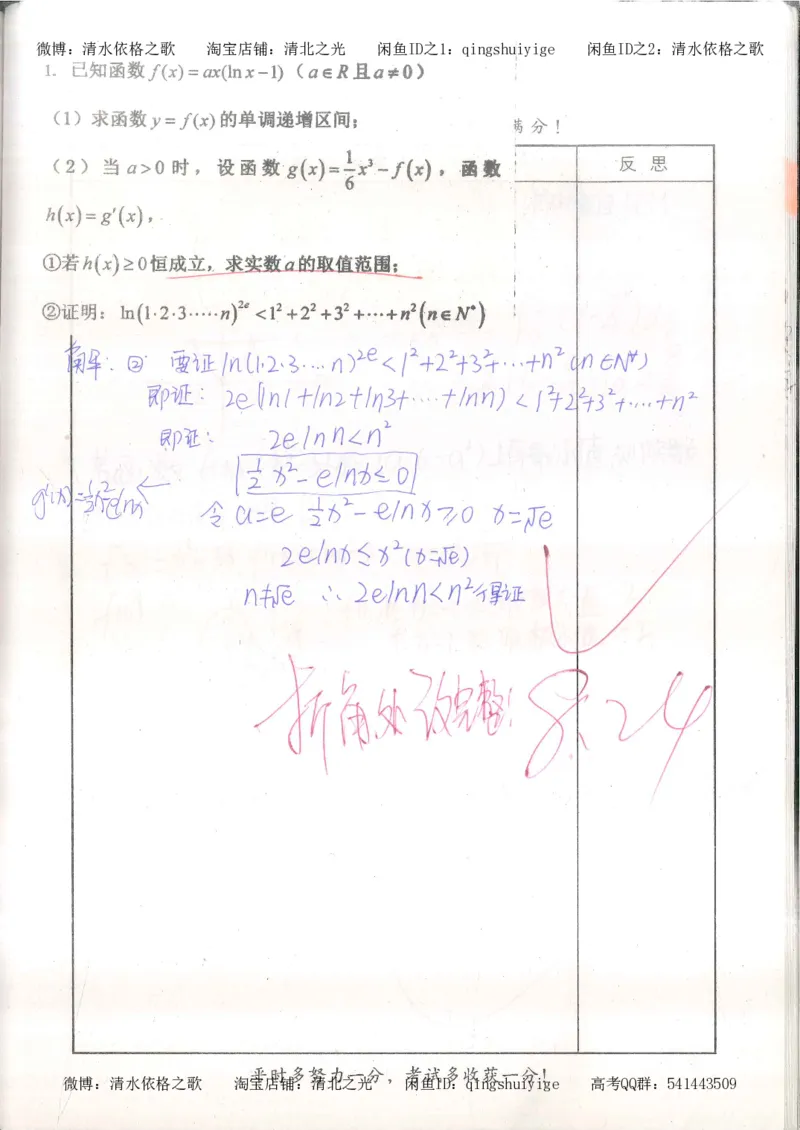 微博：清水依格之歌 淘宝店铺：清北之光 闲鱼ID之1：qingshuiyige 闲鱼ID之2：清水依格之歌
1. 已知函数 f(x)=ax(ln x-1)（a∈R且a≠0）
（1）求函数 y=f(x)的单调递增区间；
满分！
（2）当 a>0 时，设函数 g(x)=1/6 x³-f(x)，函数
反思
h(x)=g'(x)，
①若h(x)≥0恒成立，求实数a的取值范围；
②证明：ln(1·2·3·…·n)^{2e}<1²+2²+3²+⋯+n²(n∈N*)
解：② 要证 ln(1·2·3…n)^{2e}<1²+2²+3²+…+n²(n∈N*)
即证：2e(ln1+ln2+ln3+…+lnn)<1²+2²+3²+…+n²
即证：2elnn<n²
1/2x²-elnx≤0
g'(x)=1/2x²-elnx
令a=e 1/2x²-elnx≥0 x=√e
2elnx≤x²(x=√e)
n≠√e ∴2elnn<n²得证
折角处改完整！ 8.24
平时多努力一分，考试多收获一分！
微博：清水依格之歌 淘宝店铺：清北之光 闲鱼ID：qingshuiyige 高考QQ群：541443509